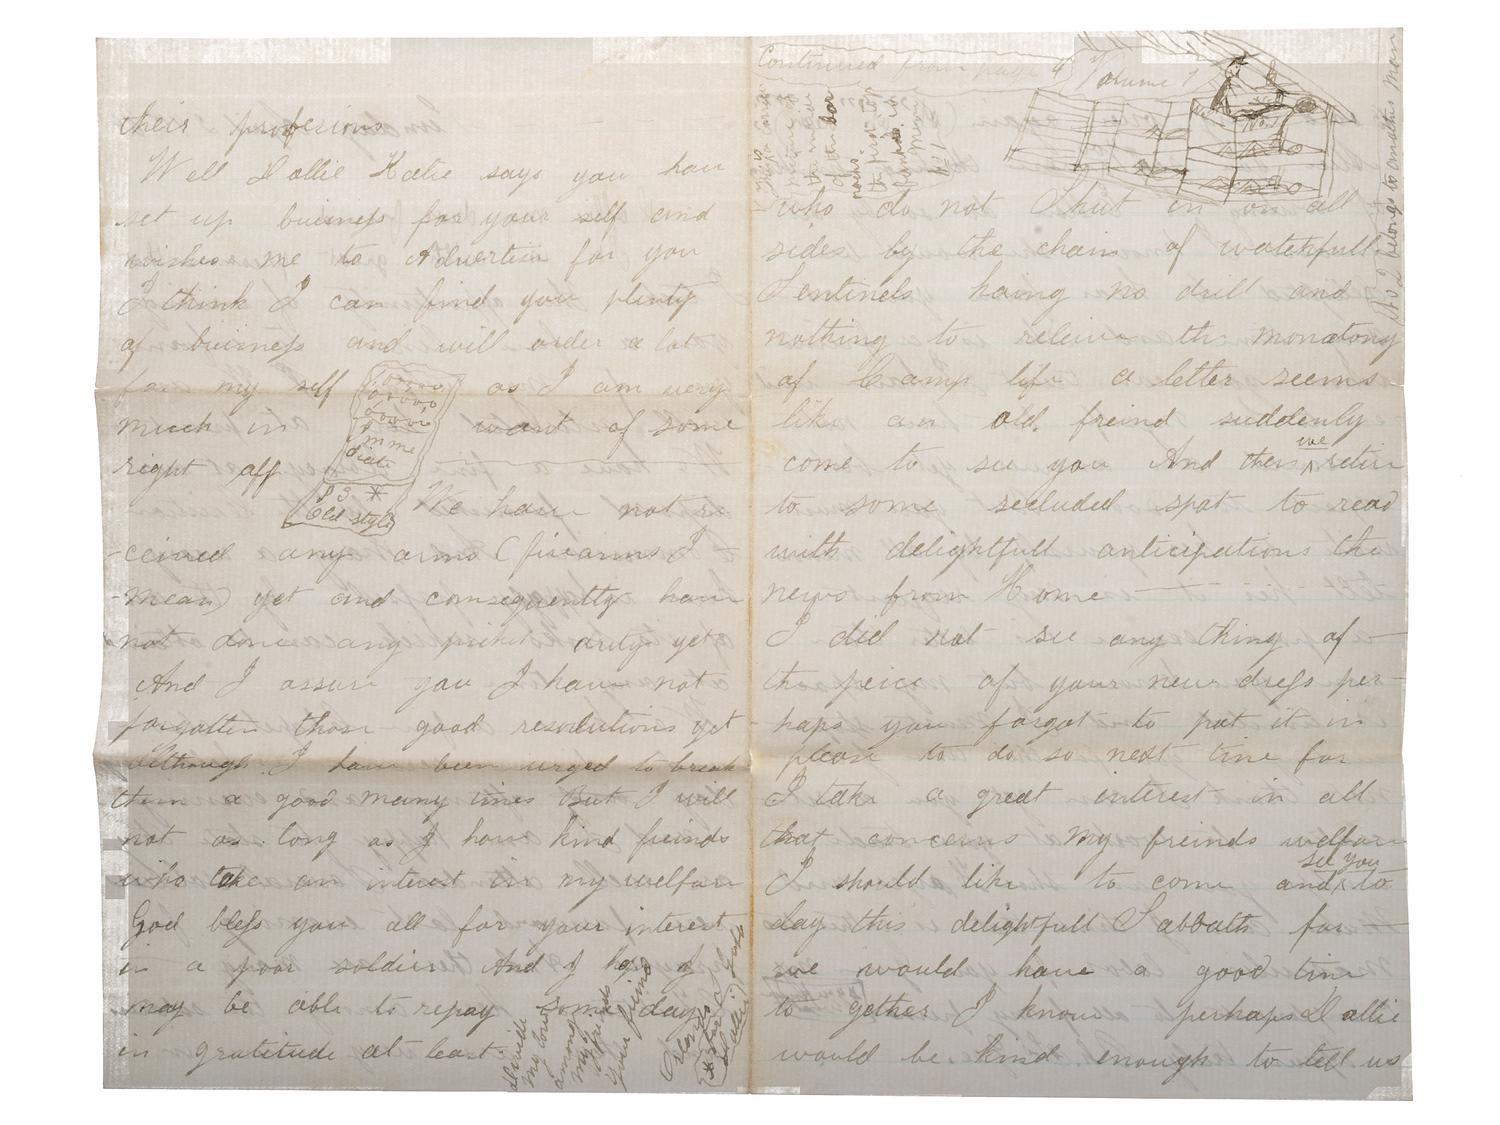 their profesions
Well Dollie Katie says you have
set up buisness for your self and
wishes me to Advertise for you
I think I can find you plenty
of buisness and will order a lot
for my self as I am very
much in want of some
right off
Imme
diate
P S *
Old style
We have not re
-ceived any arms (firearms I
-mean) yet and consequently have
not done any picket duty yet
And I assure you I have not
forgotten those good resolutions yet
Although I have been urged to break
them a good many times But I will
not as long as I have kind freinds
who take an interest in my welfare
God bless you all for your interest
in a poor soldier And I hope I
may be able to repay some day
in gratitude at least
divide
my love
among
my
freinds
Your freind
Continued from page 4 Volume 1
This
picture of
the inside
of the
the first top
No 1
No 2 belongs to another man
who do not Shut in on all
sides by the chain of watchfull
Sentinels having no drill and
nothing to releive the monotony
of Camp life a letter seems
like an old freind suddenly
come to see you And then we retire
to some secluded spot to read
with delightfull anticipations the
news from Home
I did not see any thing of
the peice of your new dress per-
haps you forgot to put it in
please to do so next time for
I take a great interest in all
that concerns my freinds welfare
I should like to come and see you to
day this delightfull Sabbath for
we would have a good time
to gether I know perhaps Dollie
would be kind enough to tell us